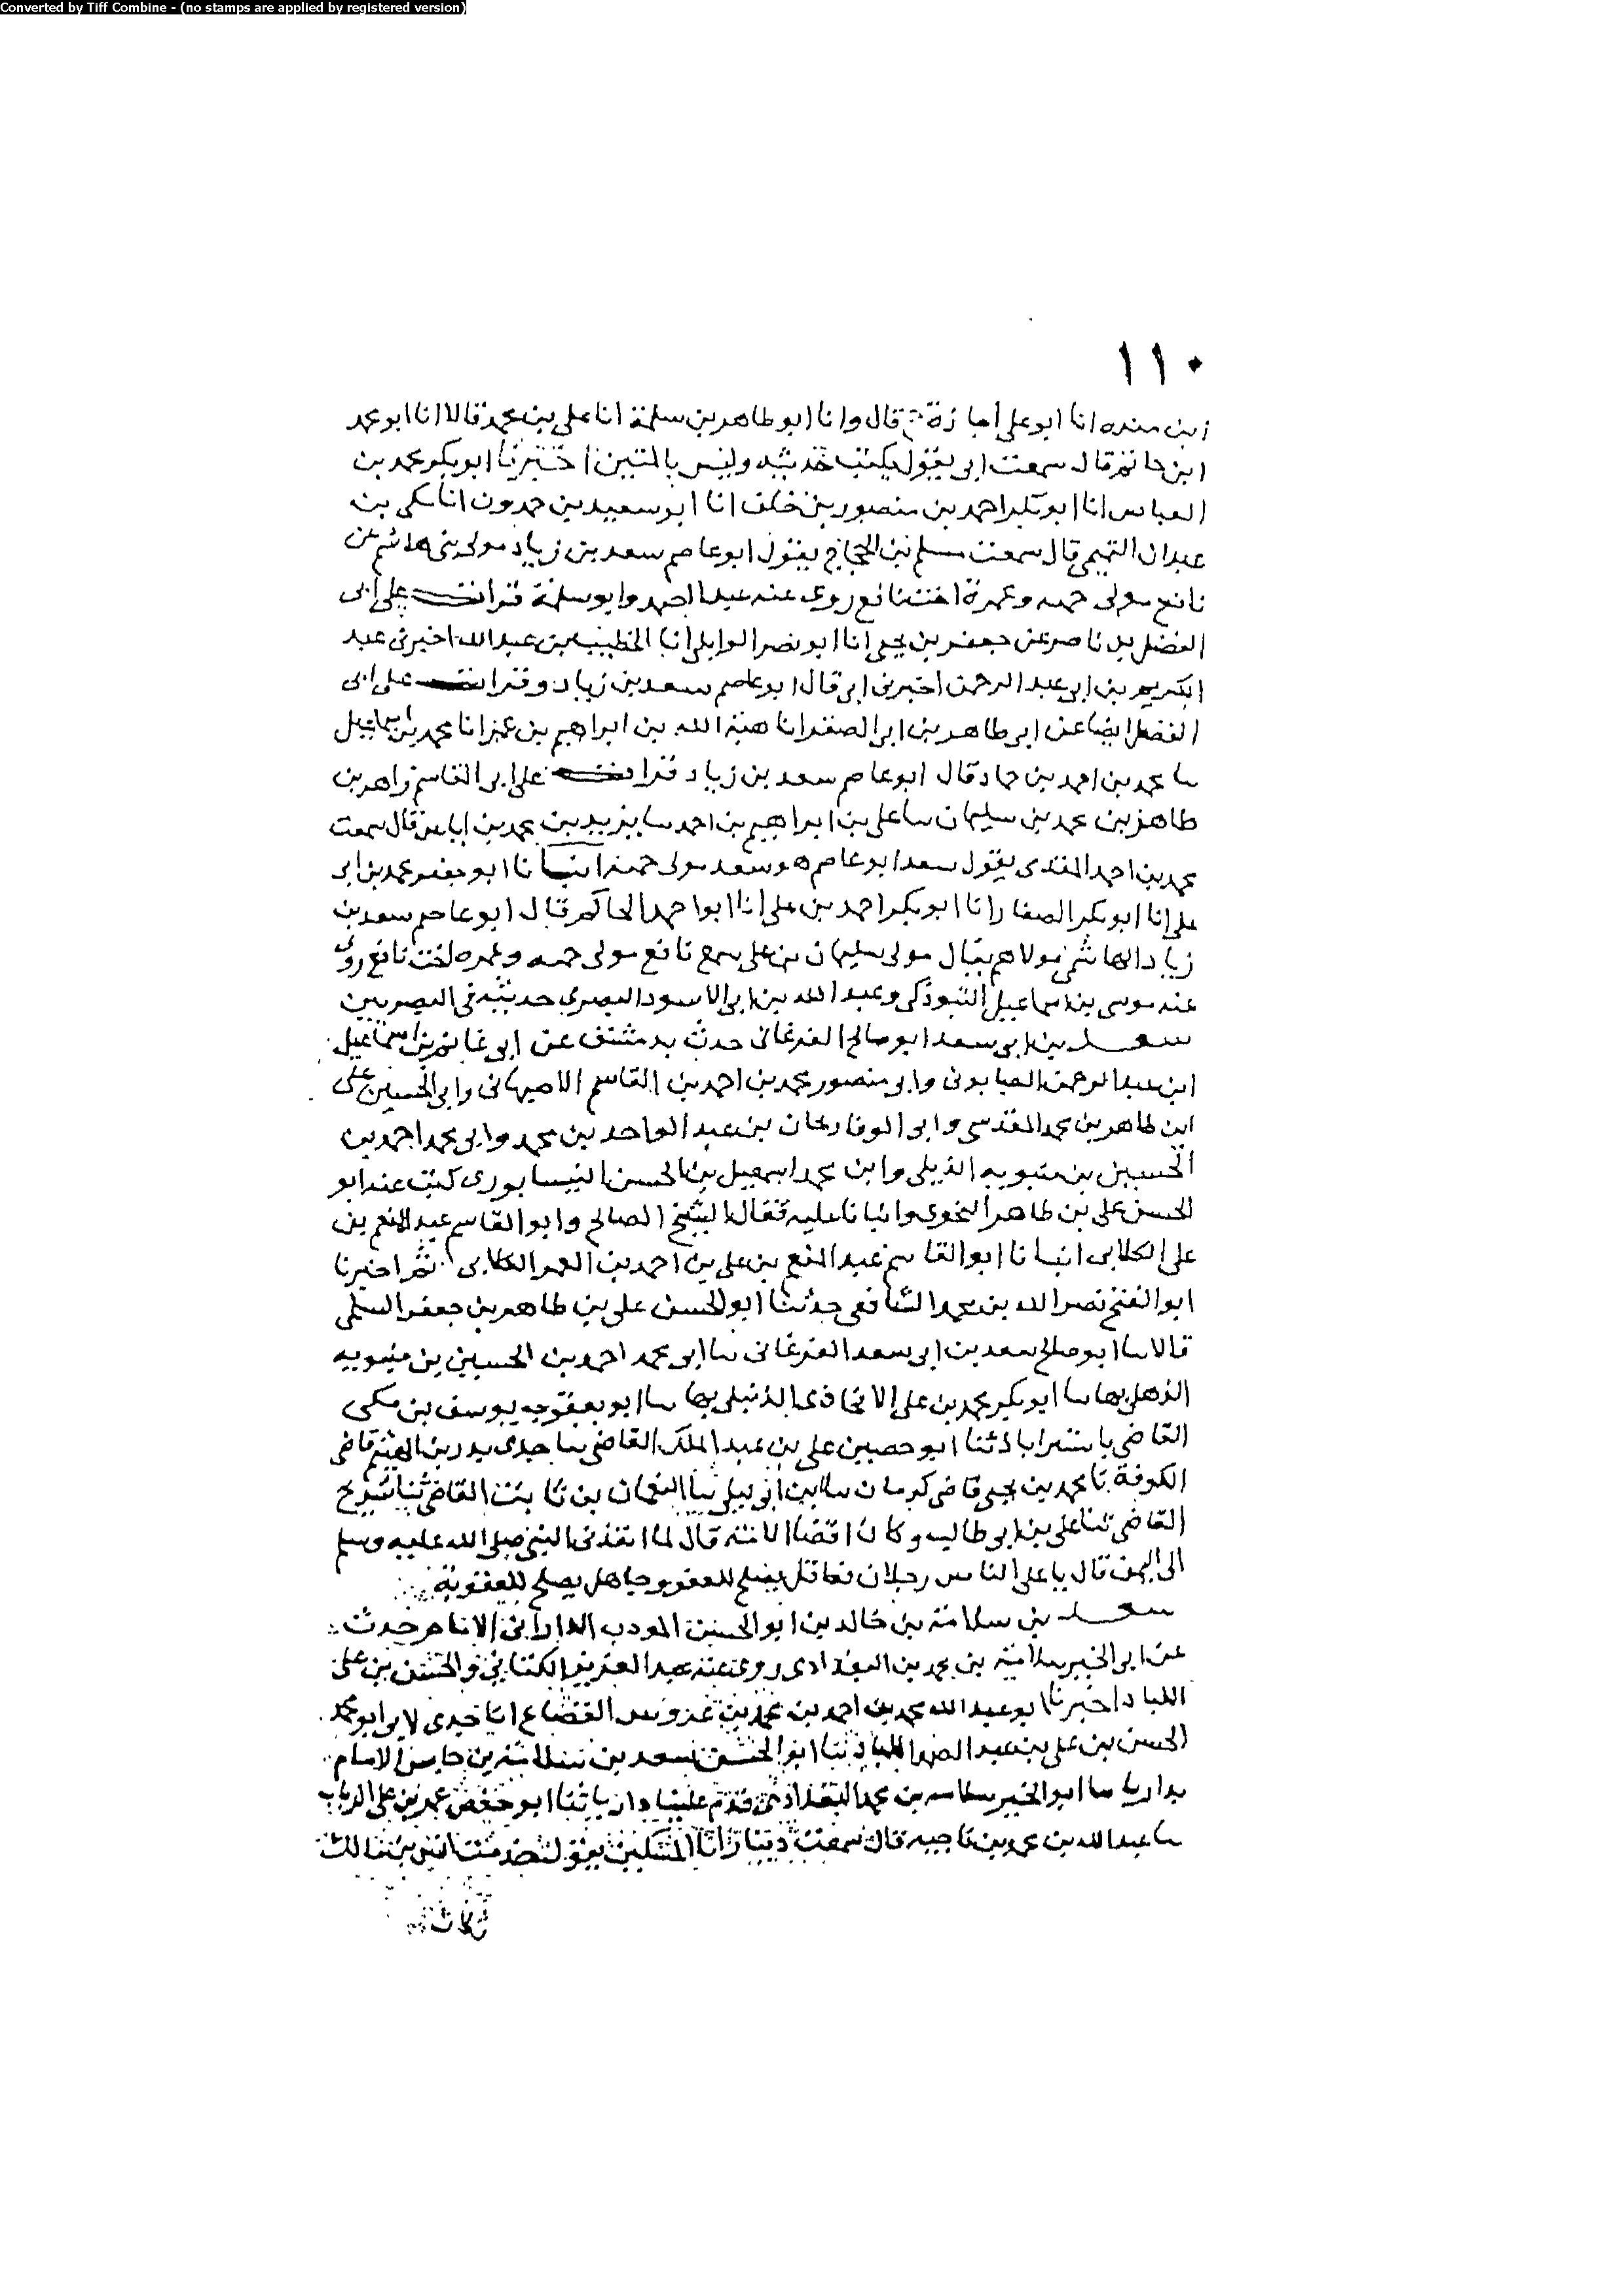 Converted by Tiff Combine - (no stamps are applied by registered version)
١١٠
ابن منده انا ابو علي اجازة ح قال وانا ابو طاهر بن سلمة انا علي بن محمد قالا انا ابو محمد
ابن حاتم قال سمعت ابي يقول يكتب حديثه وليس بالمتين اخبرنا ابو بكر محمد بن
العباس انا ابو بكر احمد بن منصور بن خلف انا ابو سعيد بن حمدون انا مكي بن
عبدان التميمي قال سمعت مسلم بن الحجاج يقول ابو عاصم سعد بن زياد مولى بني هاشم عن
نافع مولى حمنه وعمرة اخت نافع روى عنه عبد الصمد وابو سلمة قرات على ابي
الفضل بن ناصر عن جعفر بن يحيى انا ابو نصر الوايلي انا الخطيب بن عبد الله اخبرني عبد
الكريم بن ابي عبد الرحمن اخبرني ابي قال ابو عاصم سعد بن زياد وقرات على ابي
الفضل ايضا عن ابي طاهر بن ابي الصقر انا هبة الله بن ابراهيم بن عمر انا محمد بن اسماعيل
سا محمد بن احمد بن حماد قال ابو عاصم سعد بن زياد قرات على ابي القاسم زاهر بن
طاهر بن محمد بن سليمان سا علي بن ابراهيم بن احمد سا يزيد بن محمد بن اياس قال سمعت
محمد بن احمد المقدمي يقول سعد ابو عاصم هو سعد مولى حمنة انبانا ابو جعفر محمد بن ابي
علي انا ابو بكر الصفار انا ابو بكر احمد بن علي انا ابو احمد الحاكم قال ابو عاصم سعد بن
زياد الهاشمي مولاهم يقال مولى سليمان بن علي سمع نافع مولى حمنه وعمره اخت نافع روى
عنه موسى بن اسماعيل التبوذكي وعبد الله بن ابي الاسود البصري حديثه في البصريين
سعد بن ابي سعد ابو صالح الفرغاني حدث بدمشق عن ابي غانم بن اسماعيل
ابن عبد الرحمن الصابوني وابي منصور محمد بن احمد بن القاسم الاصبهاني وابي الحسين علي
ابن طاهر بن محمد المقدسي وابي الوفا رحان بن عبد الواحد بن محمد وابي محمد احمد بن
الحسين بن متبويه الذيلي وابن محمد اسمعيل بن الحسن النيسابوري كتب عنه ابو
الحسن علي بن طاهر النحوي واثبانا عليه فقالا الشيخ الصالح وابو القاسم عبد المنعم بن
علي الكلابي انبانا ابو القاسم عبد المنعم بن علي بن احمد بن العمر الكلابي ثم اخبرنا
ابو الفتح نصر الله بن محمد الشافعي حدثنا ابو الحسن علي بن طاهر بن جعفر السلمي
قالا سا ابو صالح سعد بن ابي سعد الفرغاني سا ابو محمد احمد بن الحسين بن متبويه
الذهلي بها سا ابو بكر محمد بن علي الانحاذي الدنبلي بها سا ابو يعقوب يوسف بن مكي
القاضي باستراباد ثنا ابو حصين علي بن عبد الملك القاضي سا جدي بدر بن الهيثم قاضي
الكوفة نا محمد بن يحيى قاضي كرمان سا ابن ابي ليلى سا النعمان بن ثابت القاضي ثنا شريح
القاضي ثنا علي بن ابي طالب وكان اقضا الامة قال لما انفذني النبي صلى الله عليه وسلم
الى اليمن قال يا علي الناس رجلان فعاقل يصلح للعفو وجاهل يصلح للعقوبة
سعد بن سلامة بن خالد بن ابو الحسن المودب الداراني الامام حدث
عن ابي الخير سلامة بن محمد بن البغدادي روى عنه عبد العزيز الكتاني والحسن بن علي
اللباد اخبرنا ابو عبد الله محمد بن احمد بن محمد بن عروس القضاع انا جدي لابي ابو محمد
الحسن بن علي بن عبد الصمد اللباد ثنا ابو الحسن سعد بن سلامة بن حابس الامام
بداريا سا ابو الخير سلامه بن محمد البغدادي قدم علينا داريا ثنا ابو حفص عمر بن علي الزيات
سا عبد الله بن محمد بن ناجيه قال سمعت دينارا ابا المتكيس يقول خدمت انس بن مالك
ثلاث